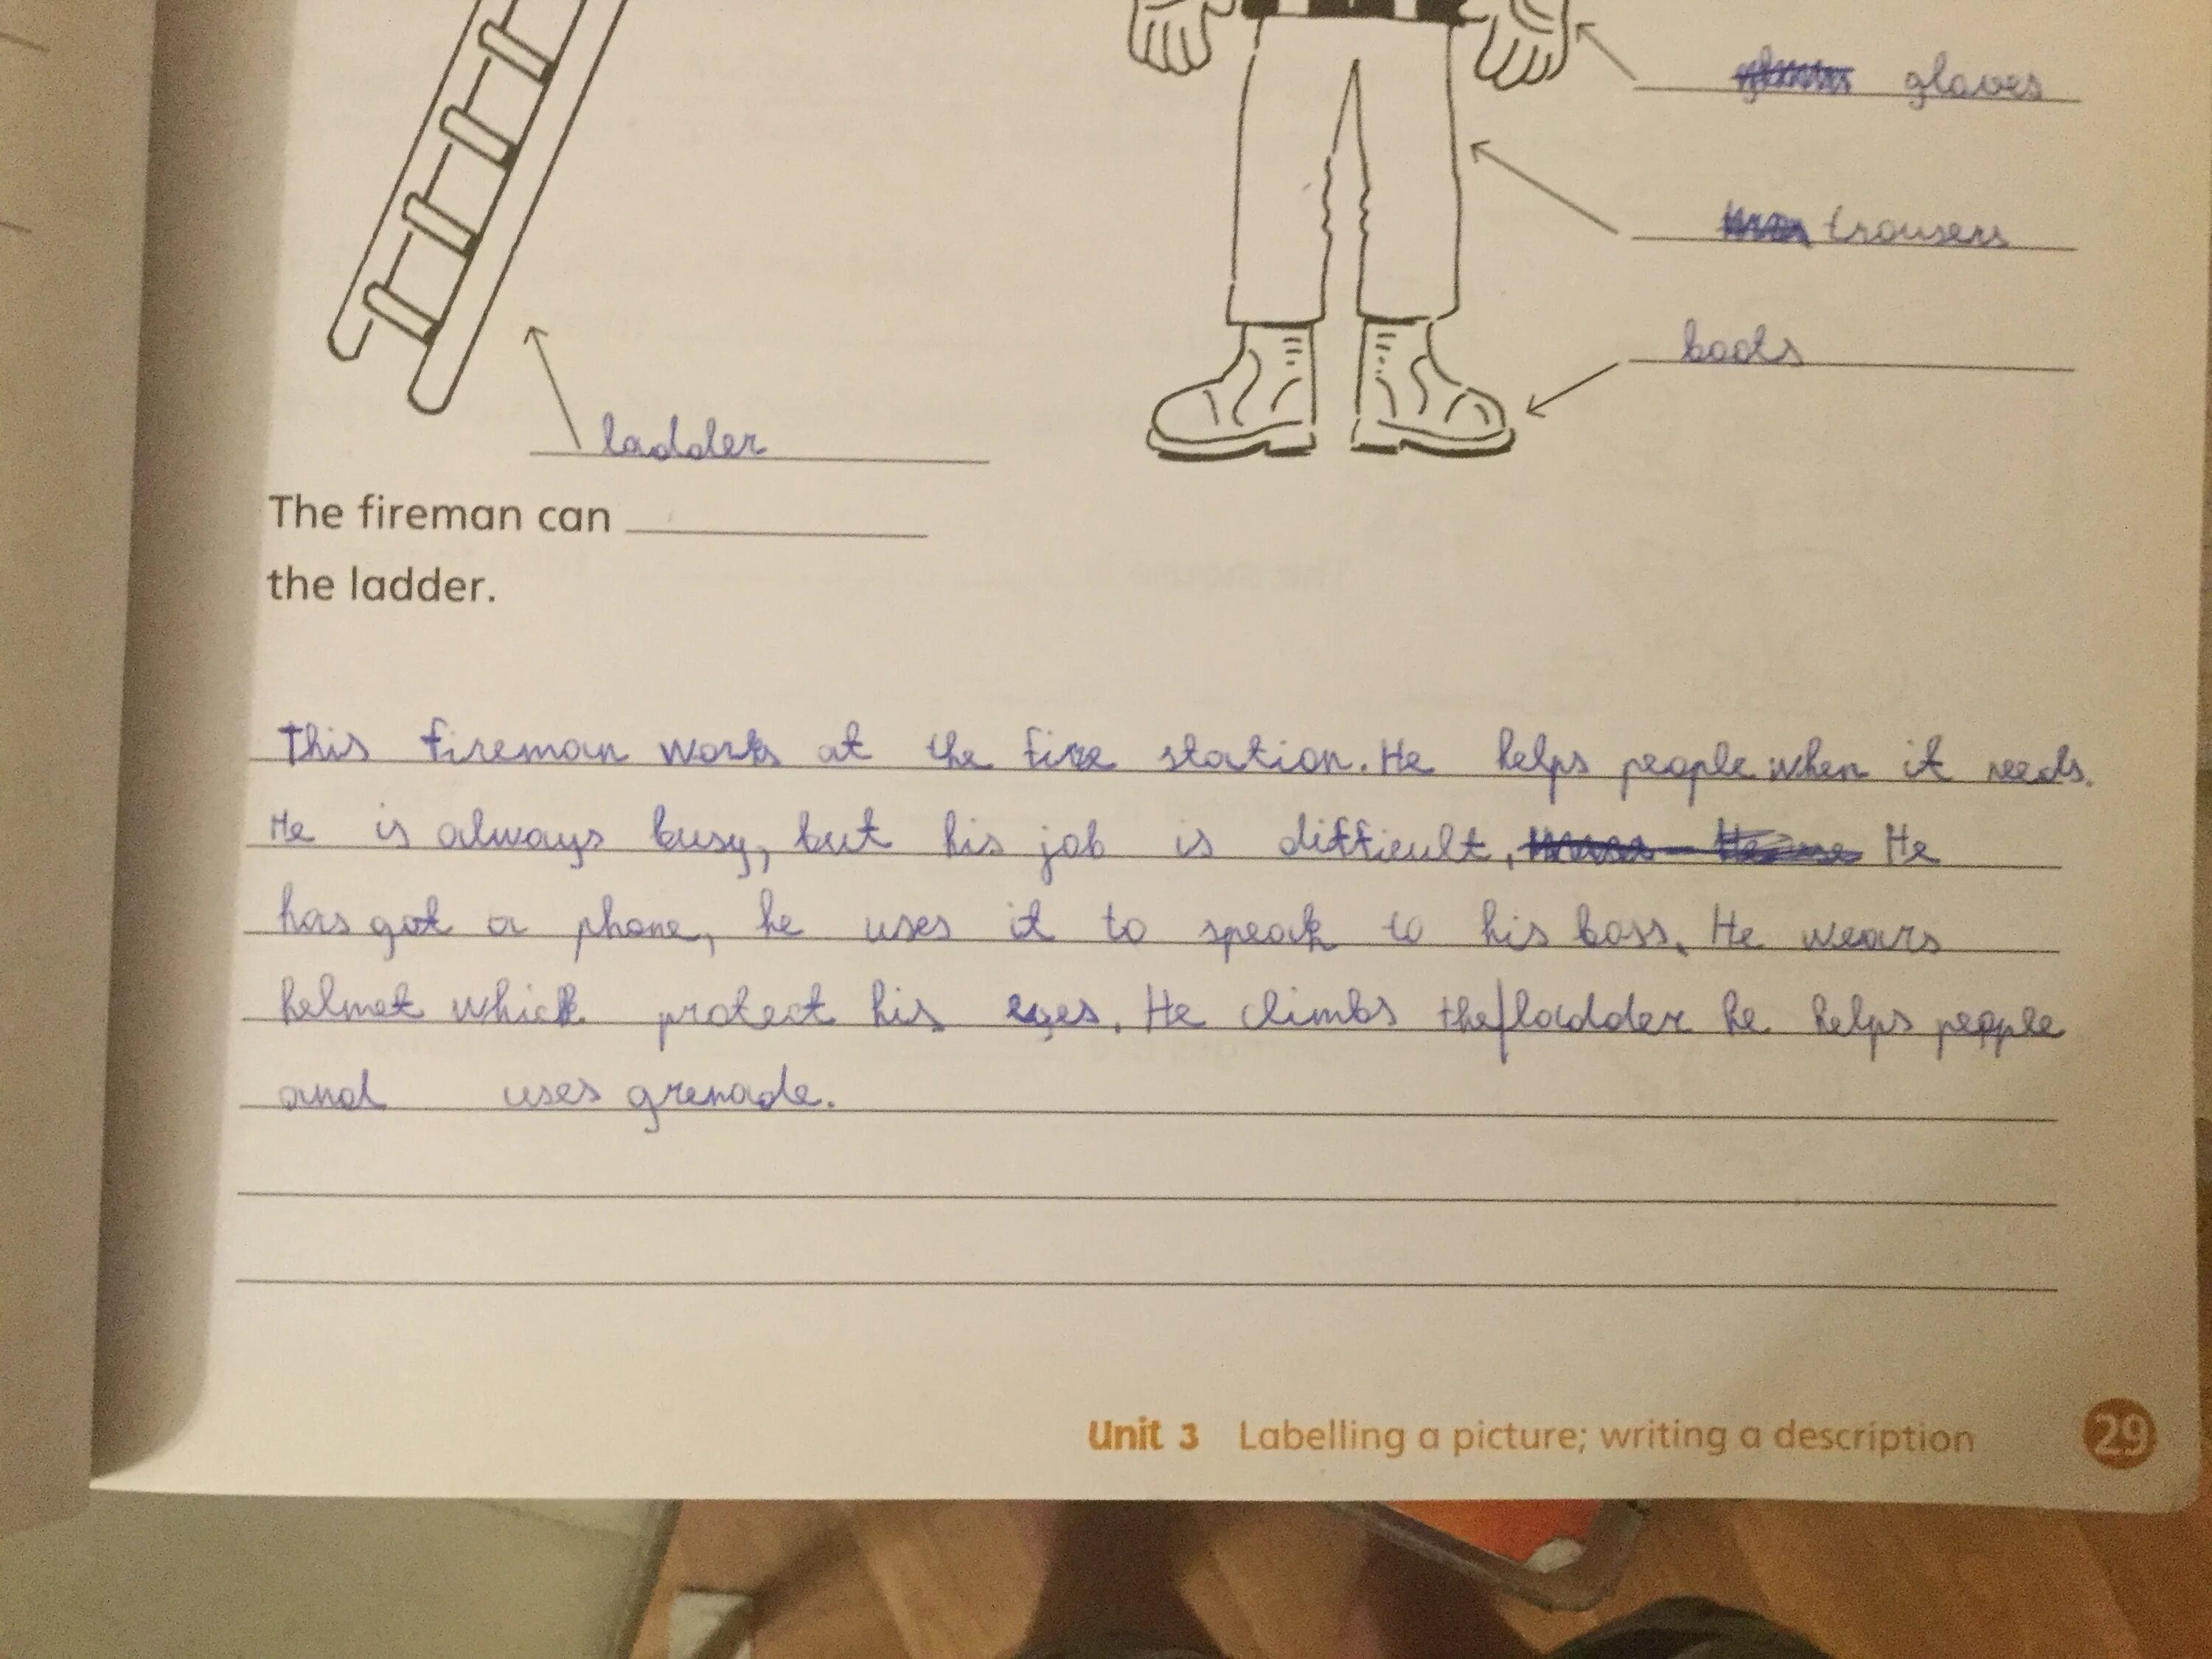 gloves
trousers
boots
ladder
The fireman can
the ladder.
This fireman works at the fire station. He helps people when it needs.
He is always busy, but his job is difficult. He
has got a phone, he uses it to speak to his boss. He wears
helmet which protect his eyes. He climbs the ladder he helps people
and uses grenade.
Unit 3 Labelling a picture; writing a description 29